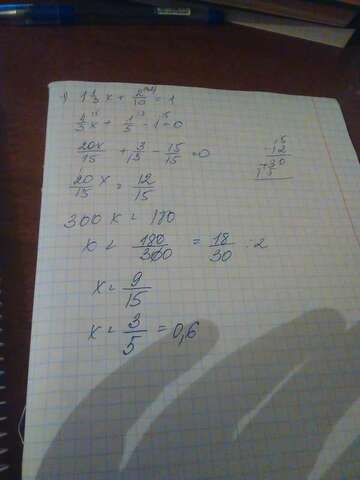 1) 1 1/3 x + 2/10 = 1
4/3 x + 1/5 - 1 = 0
20x/15 + 3/15 - 15/15 = 0
20/15 x = 12/15
300 x = 180
x = 180/300 = 18/30 : 2
x = 9/15
x = 3/5 = 0,6
15
12
30
15